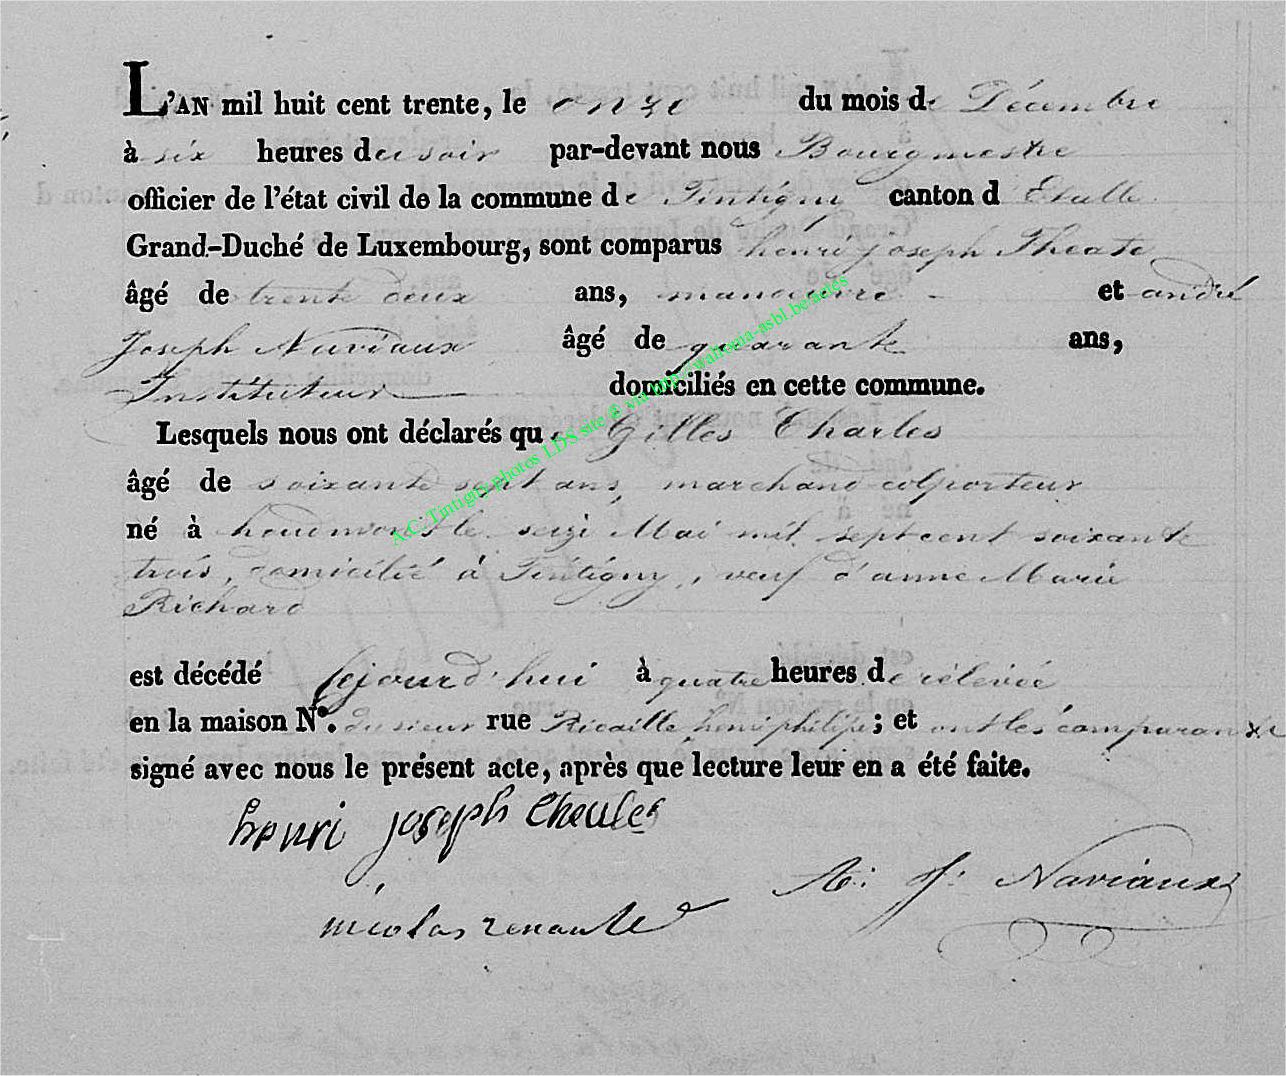 L'AN mil huit cent trente, le onze du mois de Décembre
à six heures du soir par-devant nous Bourgmestre
officier de l'état civil de la commune de Tintigny canton d Etalle
Grand-Duché de Luxembourg, sont comparus henri joseph Theate
âgé de trente deux ans, manoeuvre et andré
Joseph Naviaux âgé de quarante ans,
Instituteur domiciliés en cette commune.
Lesquels nous ont déclarés que Gilles Charles
âgé de soixante sept ans, marchand colporteur
né à le seize Mai mil sept cent soixante
trois, domicilié à Tintigny, veuf d'anne Marie
Richard
est décédé aujourd'hui à quatre heures de relevée
en la maison N°. du sieur rue Ricaille henri philippe; et ont les comparants
signé avec nous le présent acte, après que lecture leur en a été faite.
henri joseph
A: J: Naviaux
nicolas renauld
A.C. Tintigny photos LDS site @ via http://wallonia-asbl.be/actes